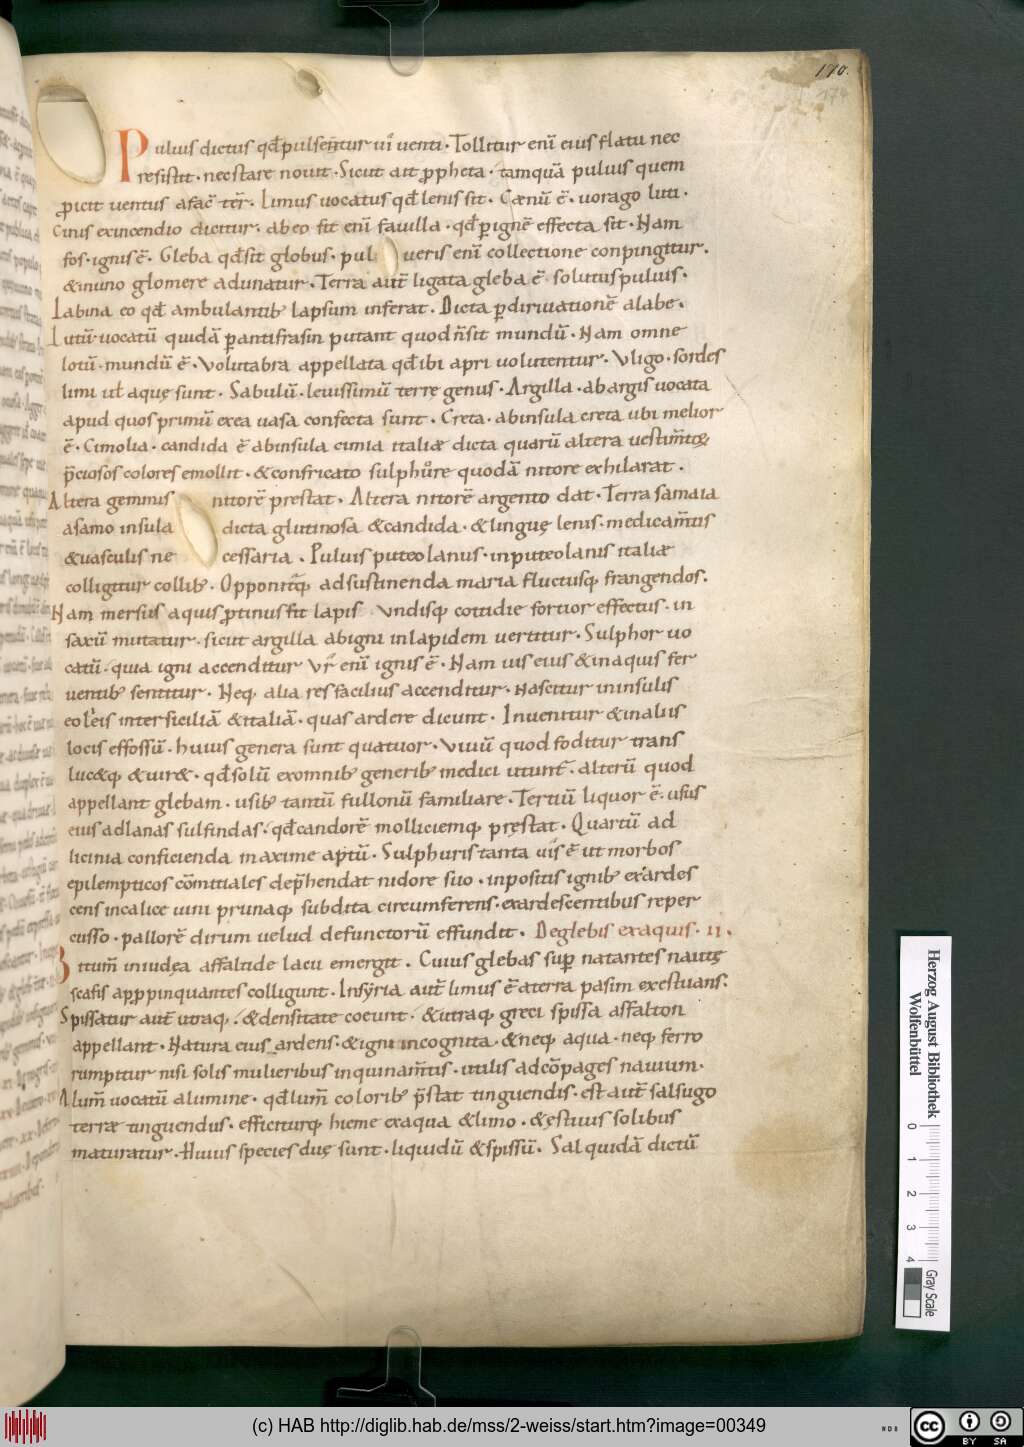 170.
174
Puluis dictus qđ pulsent̄ur ui uenti · Tollitur eni eius flatu nec
resistit · nec stare nouit · Sicut ait ꝓpheta · tamquā puluis quem
ꝓicit uentus a facie terr̄ · Limus uocatus qđ lenis sit · Cænū ē · uorago luti ·
Cinis ex incendio dicitur · ab eo fit eni fauilla · qđ ꝑ ignē effecta sit · Nam
fos · ignis ē · Gleba qđ sit globus · pul ueris eni collectione conpingitur ·
& in uno glomere adunatur · Terra aut̄ ligata gleba ē · solutus puluis ·
Labina eo qđ ambulantib; lapsum inferat · Dicta ꝑ diriuationē a labe ·
Lutū uocatū quidā ꝑ antifrasin putant quod ñ sit mundū · Nam omne
lotū · mundū ē · Volutabra appellata qđ ibi apri uolutentur · Vligo · sordes
limi ut aquę sunt · Sabulū · leuissimū terrę genus · Argilla · ab argis uocata
apud quos primū ex ea uasa confecta sunt · Creta · ab insula creta ubi melior
ē · Cimolia · candida ē ab insula cimia italiæ dicta quarū altera uestim̄tis
p̄ciosos colores emollit · & confricato sulphure quodā nitore exhilarat ·
Altera gemmis nitorē prestat · Altera nitorē argento dat · Terra samaia
a samo insula dicta glutinosa & candida · & linguę lenis · medicam̄tis
& uasculis ne cessaria · Puluis puteolanus · in puteolanis italiæ
colligitur collib; · Opponitq; ad sustinenda maria fluctusq; frangendos ·
Nam mersus aquis ꝓtinus fit lapis undisq; cottidie fortior effectus · in
saxū mutatur · sicut argilla ab igni in lapidem uertitur · Sulphor uo
catū · quia igni accenditur Vr eni ignis ē · Nam uis eius & in aquis fer
uentib; sentitur · Neq; alia res facilius accenditur · Nascitur in insulis
eoleis inter siciliā & italiā · quas ardere dicunt · Inuenitur & in aliis
locis effossū · huius genera sunt quatuor · Viuū quod foditur trans
luc&q; & uir& · qđ solū ex omnib; generib; medici utunt̄ · alterū quod
appellant glebam · usib; tantū fullonū familiare · Tertiū liquor ē · usus
eius ad lanas sulfindas · qđ candorē molliciemq; pręstat · Quartū ad
licinia conficienda maxime aptū · Sulphuris tanta uis ē ut morbos
epilempticos comitiales dep̄hendat nidore suo · in positis ignib; & ardes
cens in calice uini prunaq; subdita circumferens · exardescentibus reper
cusso · pallorē dirum uelud defunctorū effundit · De glebis ex aquis · ii ·
Bitum̄ in iudęa asfaltide lacu emergit · Cuius glebas suꝑ natantes nautę
scafis apꝓpinquantes colligunt · In syria aut̄ limus ē a terra pasim exestuans ·
Spissatur aut̄ utraq; · & densitate coeunt · & utraq; greci spissa asfalton
appellant · Natura eius ardens · & igni incognita · & neq; aqua · neq; ferro
rumpitur nisi solis mulieribus inquinam̄tis · utilis ad cōpages nauium ·
Alum̄ uocatū a lumine · qđ lum̄ colorib; p̄stat tinguendis · est aut̄ salsugo
terræ tinguendus · efficiturq; hieme ex aqua & limo · & ęstiuis solibus
maturatur · Huius species duę sunt · liquidū & spissū · Sal quidā dictū
Herzog August Bibliothek
Wolfenbüttel
0 1 2 3 4
Gray Scale
(c) HAB http://diglib.hab.de/mss/2-weiss/start.htm?image=00349
WDB
cc BY SA